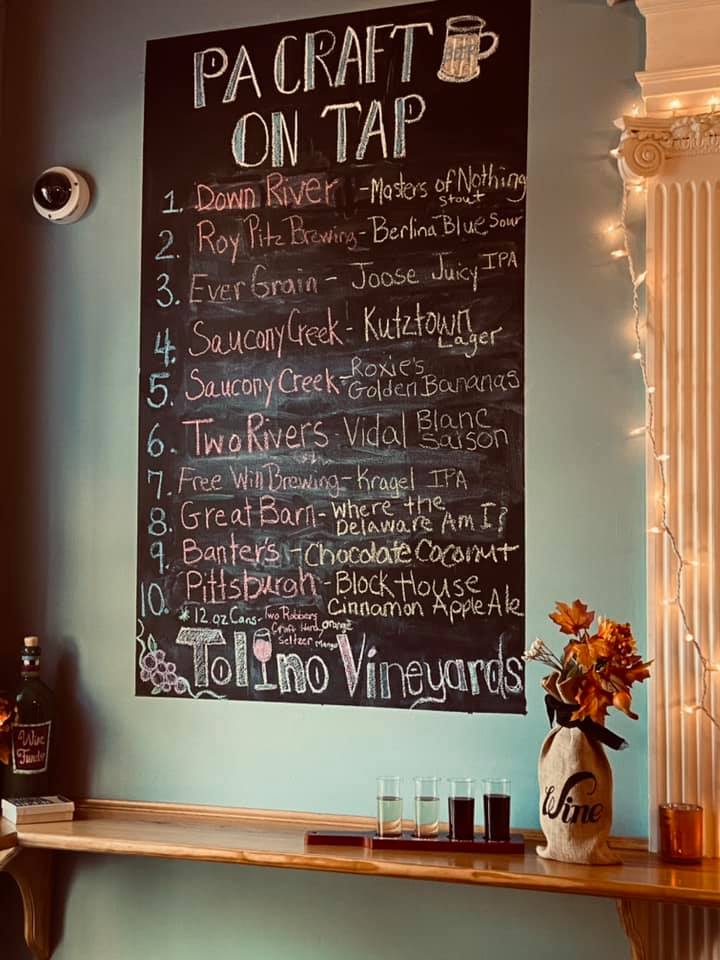 PA CRAFT
BEER
ON TAP
1. Down River - Masters of Nothing
stout
2. Roy Pitz Brewing - Berlina Blue Sour
3. Ever Grain - Joose Juicy IPA
4. Saucony Creek - Kutztown
Lager
5. Saucony Creek - Roxie's
Golden Bananas
6. Two Rivers - Vidal Blanc
Saison
7. Free Will Brewing - Kragel IPA
8. Great Barn - Where the
Delaware Am I?
9. Banter's - Chocolate Coconut
10. Pittsburgh - Block House
Cinnamon Apple Ale
* 12.oz Cans - Two Robbers
Craft Hard Orange
Seltzer Mango
Tolino Vineyards
Wine
Wine